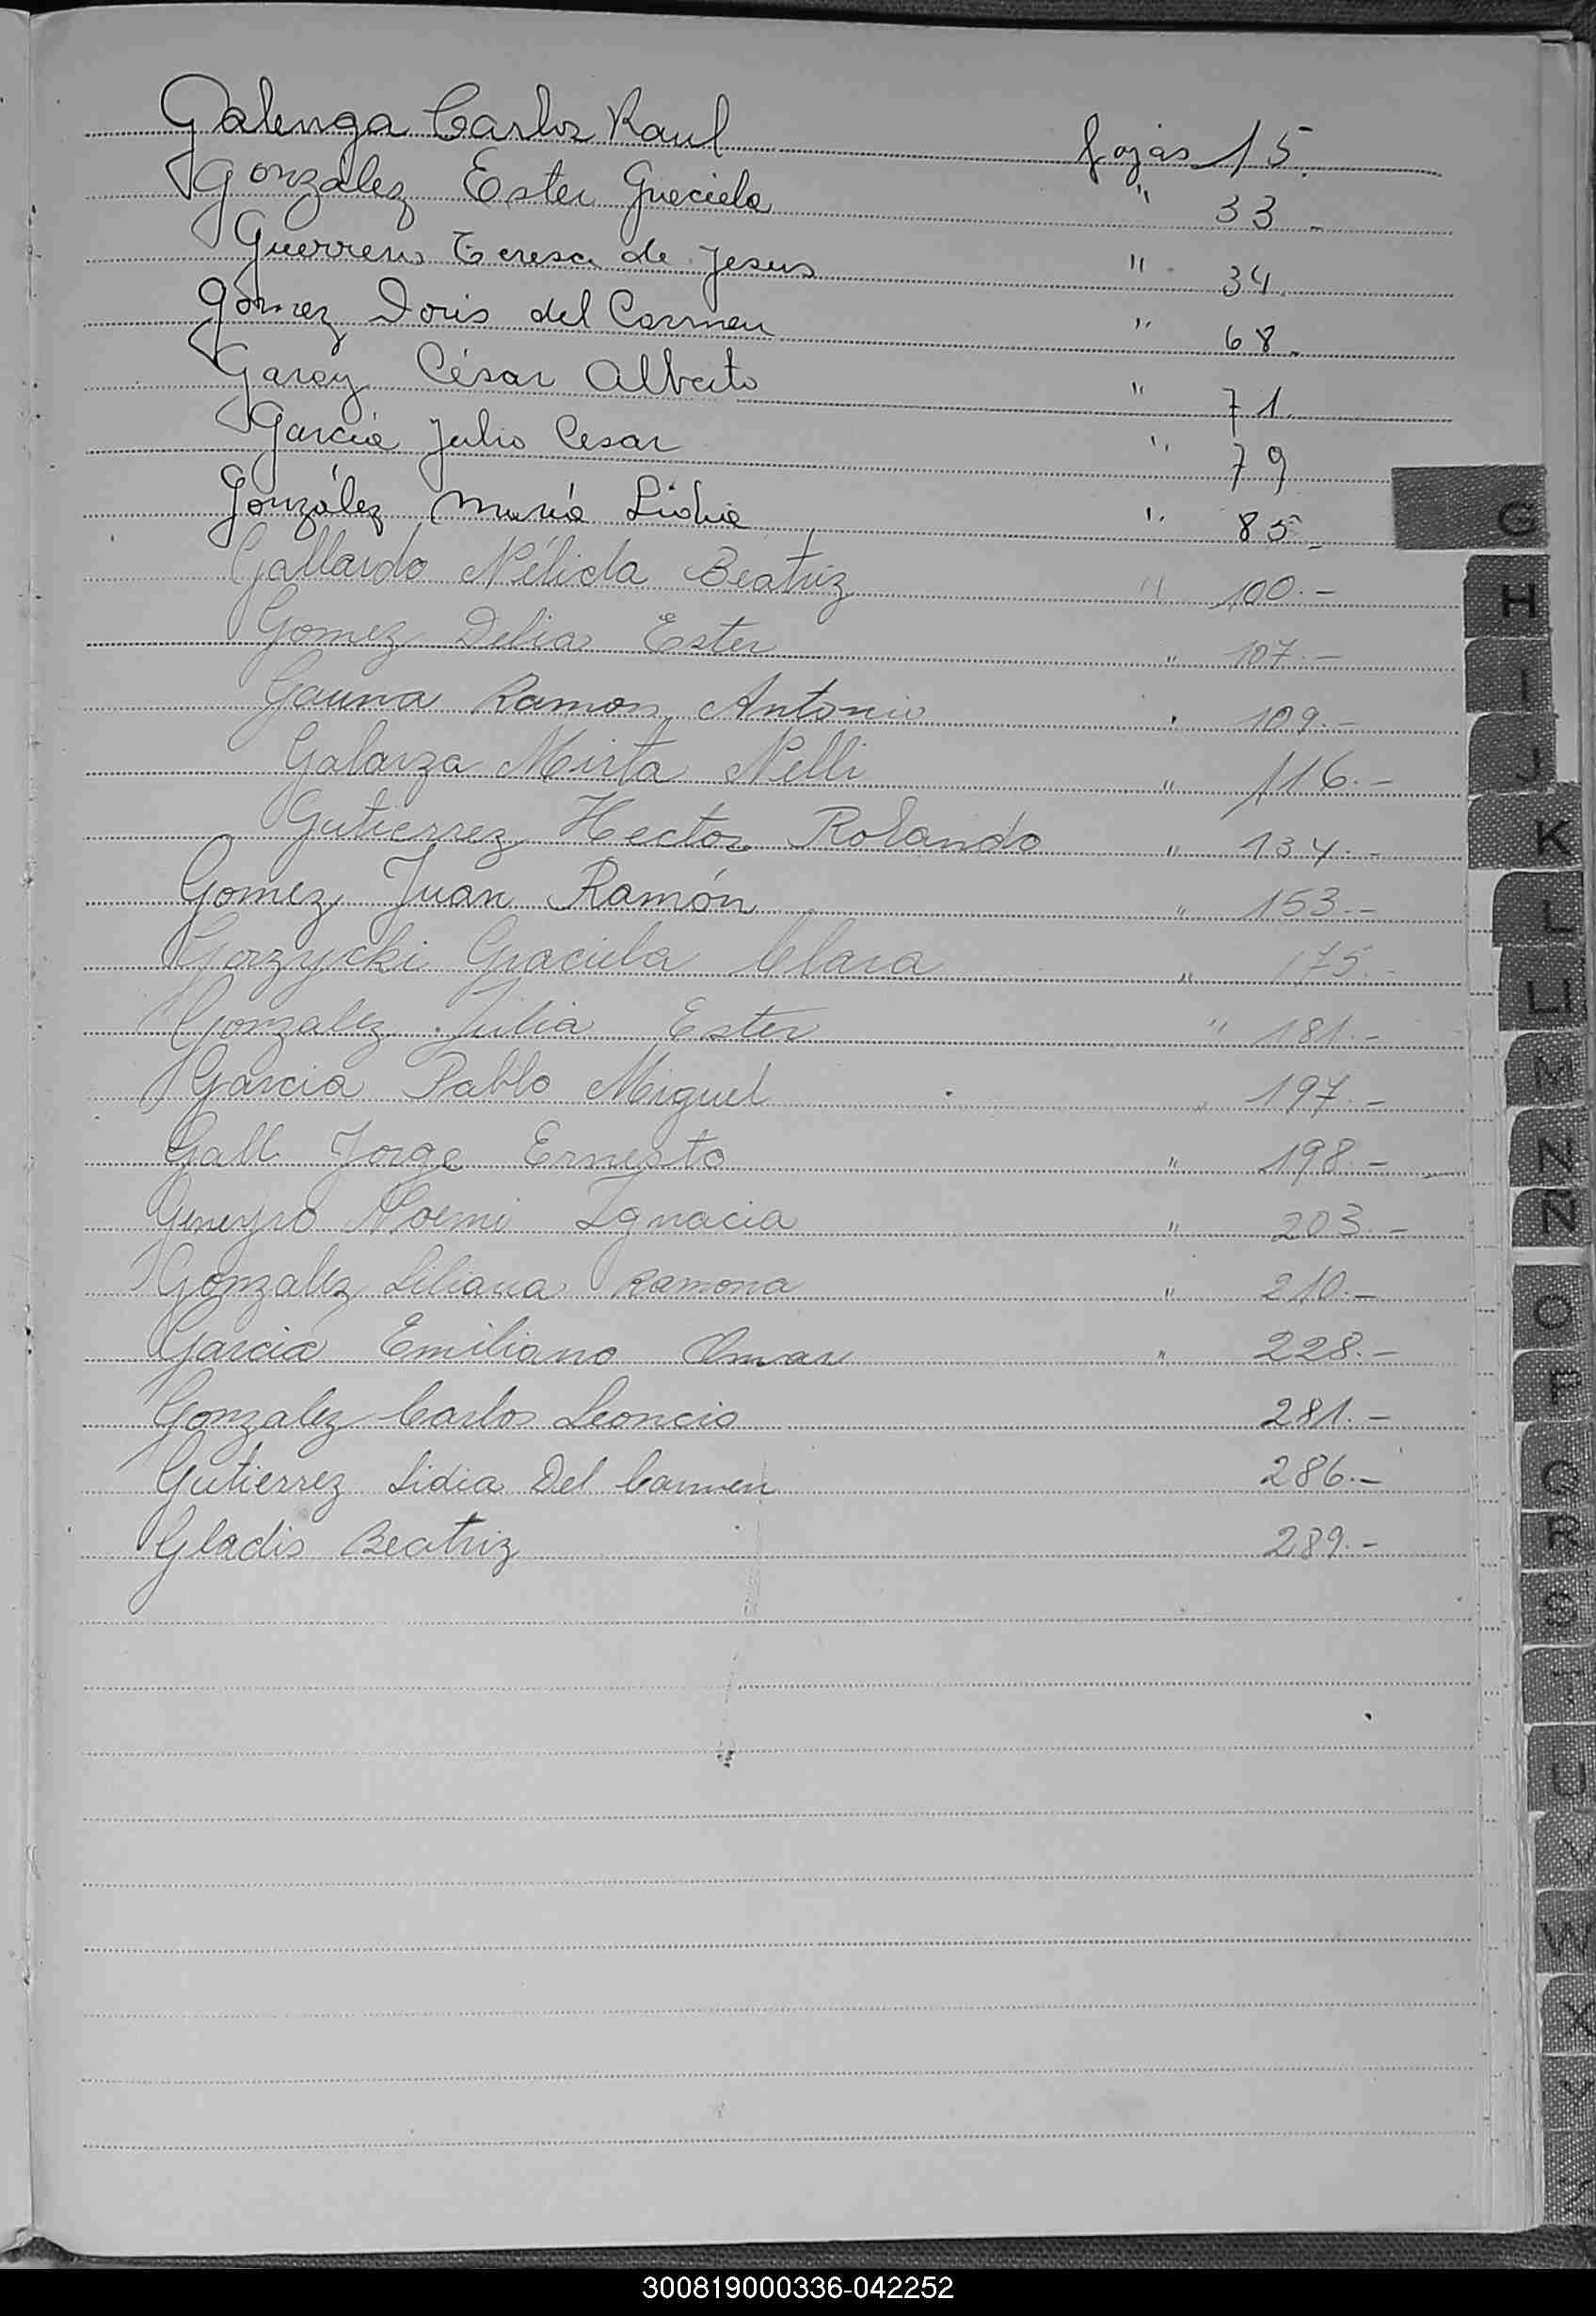 Galenga Carlos Raul fojas 15.
González Ester Graciela " 33.-
Guerrero Teresa de Jesus " 34.
Gómez Doris del Carmen " 68.-
Garay César Alberto " 71.
García Julio Cesar " 79
González María Lidia " 85.-
Gallardo Nélida Beatriz " 100.-
Gomez Delia Ester " 107.-
Gauna Ramon Antonio " 109.-
Galarza Mirta Nelli " 116.-
Gutierrez Hector Rolando " 134.-
Gomez Juan Ramón " 153.-
Gorzycki Graciela Clara " 175.-
Gonzalez Julia Ester " 181.-
Garcia Pablo Miguel " 197.-
Gall Jorge Ernesto " 198.-
Geneyro Noemi Ignacia " 203.-
Gonzalez Liliana Ramona " 210.-
Garcia Emiliano Omar " 228.-
Gonzalez Carlos Leoncio 281.-
Gutierrez Lidia Del Carmen 286.-
Gladis Beatriz 289.-
G
H
I
J
K
L
LL
M
N
Ñ
O
P
Q
R
S
T
U
V
W
X
Y
300819000336-042252